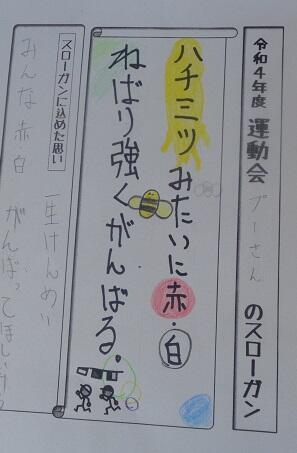 令和4年度 運動会 プーさん のスローガン
ハチミツみたいに赤・白
ねばり強くがんばる。
スローガンに込めた思い
一生けんめい
みんな赤白
がんばってほしい